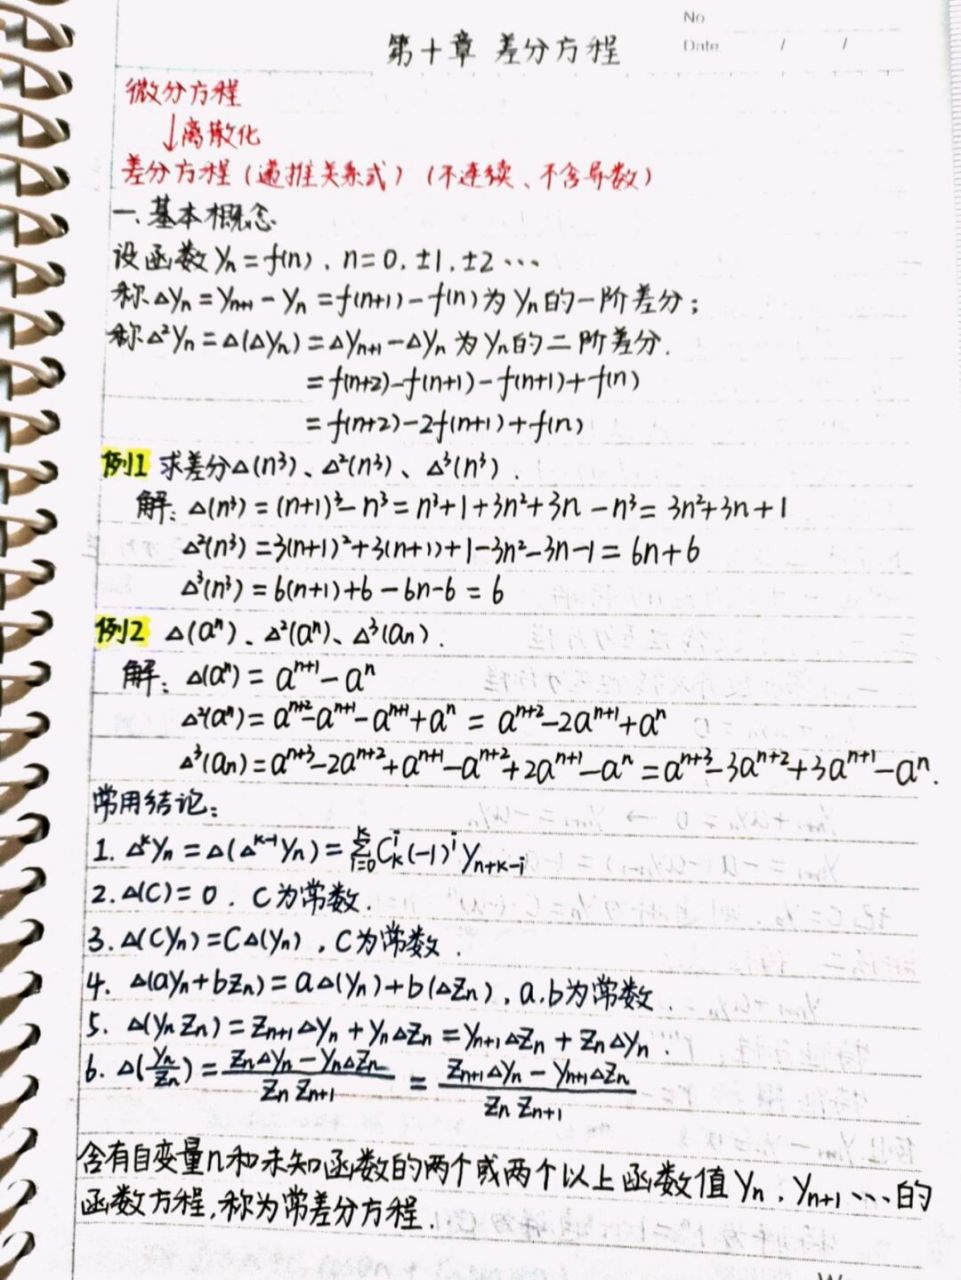 No
Date / /
第十章 差分方程
微分方程
↓离散化
差分方程(递推关系式)(不连续、不含导数)
一.基本概念
设函数 yₙ=f(n), n=0,±1,±2…
称Δyₙ=yₙ₊₁-yₙ=f(n+1)-f(n)为yₙ的一阶差分;
称Δ²yₙ=Δ(Δyₙ)=Δyₙ₊₁-Δyₙ为yₙ的二阶差分.
=f(n+2)-f(n+1)-f(n+1)+f(n)
=f(n+2)-2f(n+1)+f(n)
例1 求差分Δ(n³)、Δ²(n³)、Δ³(n³).
解: Δ(n³)=(n+1)³-n³=n³+1+3n²+3n-n³=3n²+3n+1
Δ²(n³)=3(n+1)²+3(n+1)+1-3n²-3n-1=6n+6
Δ³(n³)=6(n+1)+6-6n-6=6
例2 Δ(aⁿ)、Δ²(aⁿ)、Δ³(aₙ).
解: Δ(aⁿ)=aⁿ⁺¹-aⁿ
Δ²(aⁿ)=aⁿ⁺²-aⁿ⁺¹-aⁿ⁺¹+aⁿ=aⁿ⁺²-2aⁿ⁺¹+aⁿ
Δ³(aₙ)=aⁿ⁺³-2aⁿ⁺²+aⁿ⁺¹-aⁿ⁺²+2aⁿ⁺¹-aⁿ=aⁿ⁺³-3aⁿ⁺²+3aⁿ⁺¹-aⁿ.
常用结论:
1. Δᵏyₙ=Δ(Δᵏ⁻¹yₙ)=∑ᵢ₌₀ᵏ Cₖⁱ(-1)ⁱyₙ₊ₖ₋ᵢ
2. Δ(C)=0. C为常数.
3. Δ(Cyₙ)=CΔ(yₙ), C为常数.
4. Δ(ayₙ+bzₙ)=aΔ(yₙ)+b(Δzₙ), a.b为常数
5. Δ(yₙzₙ)=zₙ₊₁Δyₙ+yₙΔzₙ=yₙ₊₁Δzₙ+zₙΔyₙ.
6. Δ(yₙ/zₙ)=(zₙΔyₙ-yₙΔzₙ)/(zₙzₙ₊₁)=(zₙ₊₁Δyₙ-yₙ₊₁Δzₙ)/(zₙzₙ₊₁)
含有自变量n和未知函数的两个或两个以上函数值yₙ,yₙ₊₁…的
函数方程,称为常差分方程.